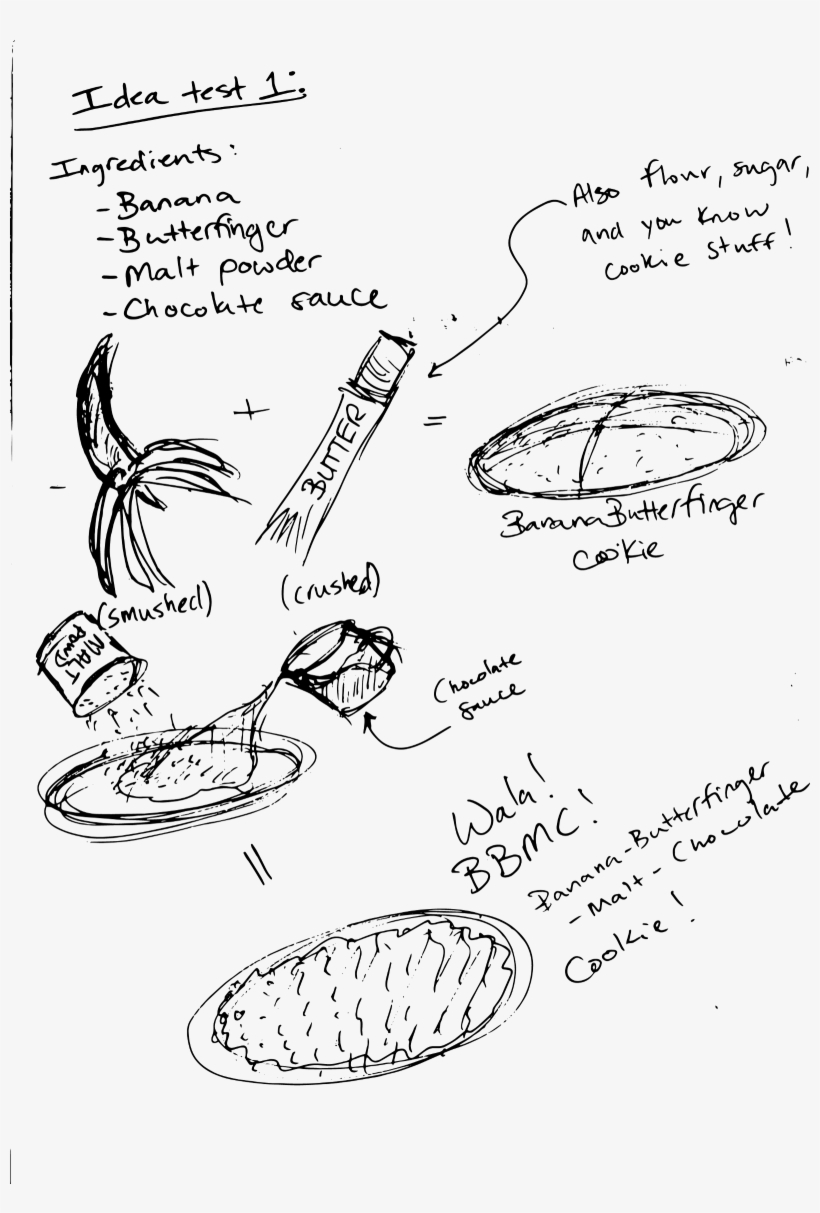 Idea test 1:
Ingredients:
- Banana
- Butterfinger
- Malt powder
- Chocolate sauce
Also flour, sugar,
and you know
cookie stuff!
+
BUTTER
=
BananaButterfinger
Cookie
(smushed)
(crushed)
MALT
POWD
Chocolate
sauce
=
Wala!
BBMC!
Banana-Butterfinger
-Malt-Chocolate
Cookie!